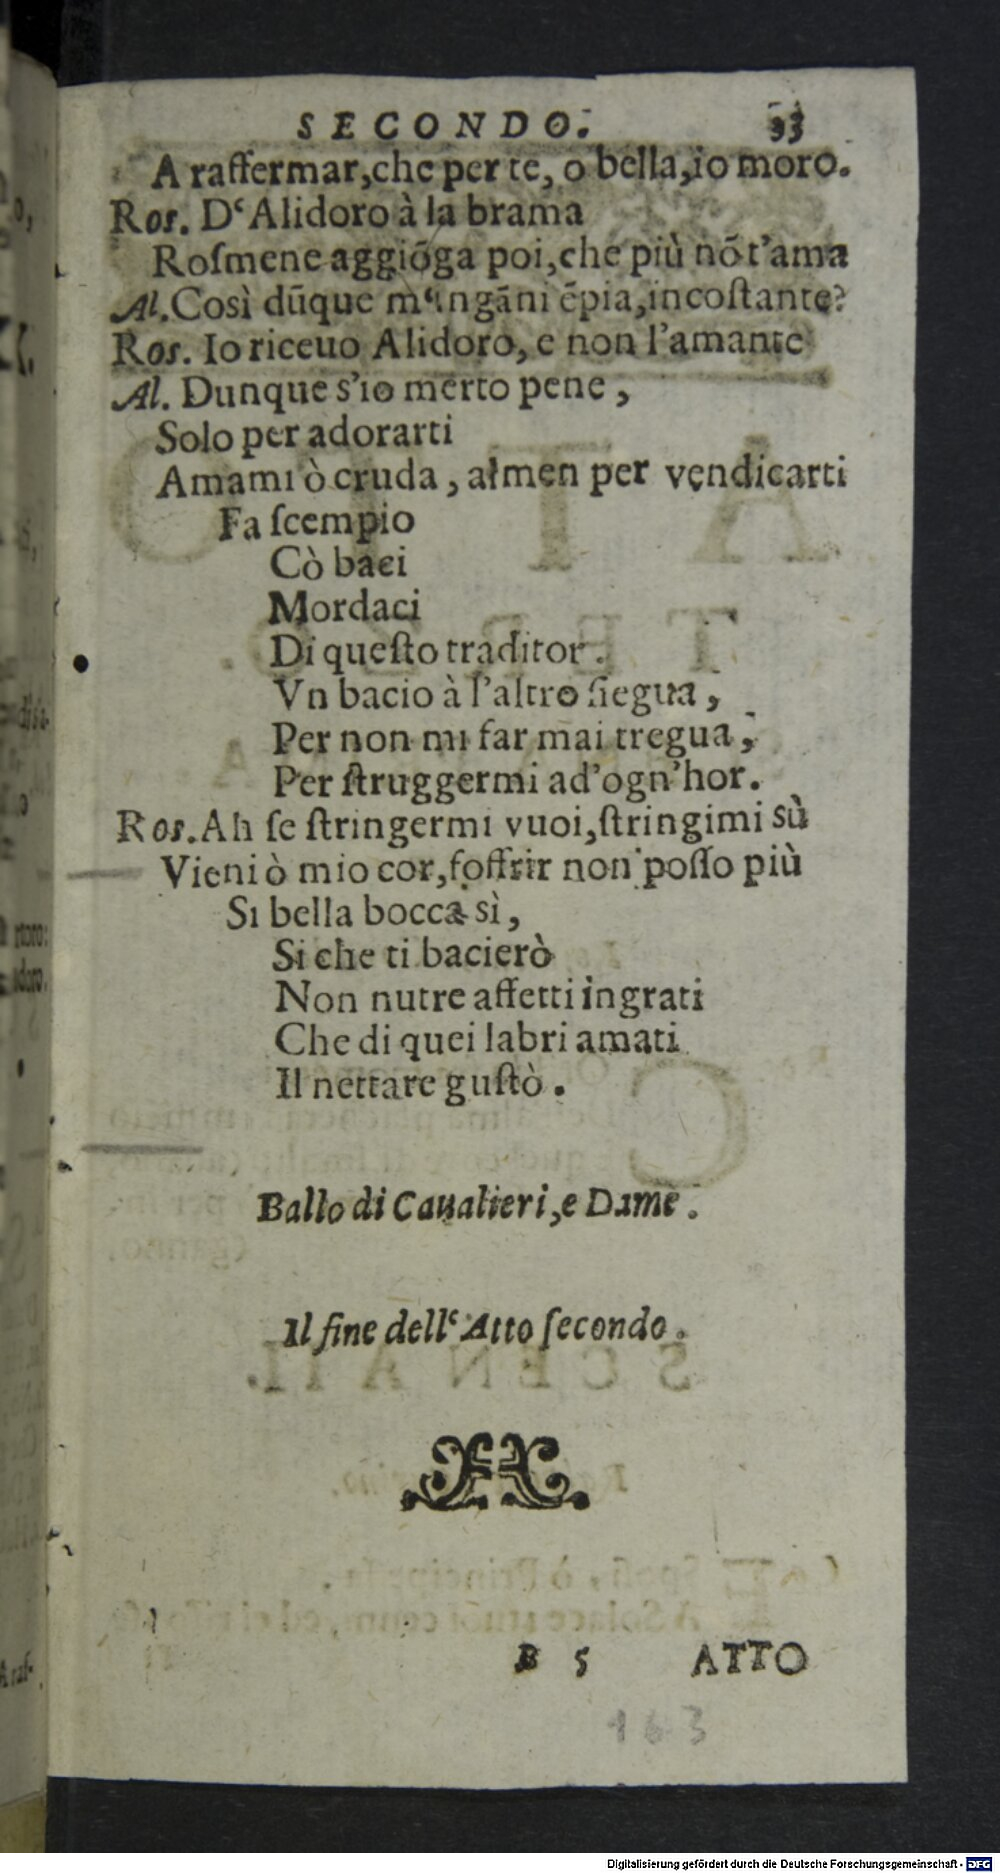 SECONDO. 33
A raffermar,che per te, o bella,io moro.
Ros. D‘ Alidoro à la brama
Rosmene aggiōga poi,che più nō t’ama
Al. Così dūque m‘ingāni ēpia,incoſtante?
Ros. Io riceuo Alidoro, e non l’amante
Al. Dunque s’io merto pene ,
Solo per adorarti
Amami ò cruda , almen per vendicarti
Fa ſcempio
Cò baci
Mordaci
Di queſto traditor .
Vn bacio à l’altro ſiegua ,
Per non mi far mai tregua ,
Per ſtruggermi ad’ogn’hor .
Ros. Ah ſe ſtringermi vuoi,ſtringimi sù
Vieni ò mio cor,ſoffrir non poſſo più
Si bella bocca sì ,
Si che ti bacierò
Non nutre affetti ingrati
Che di quei labri amati
Il nettare guſtò .
Ballo di Caualieri,e Dame .
Il fine dell‘ Atto ſecondo .
B 5 ATTO
163
Digitalisierung gefördert durch die Deutsche Forschungsgemeinschaft - DFG